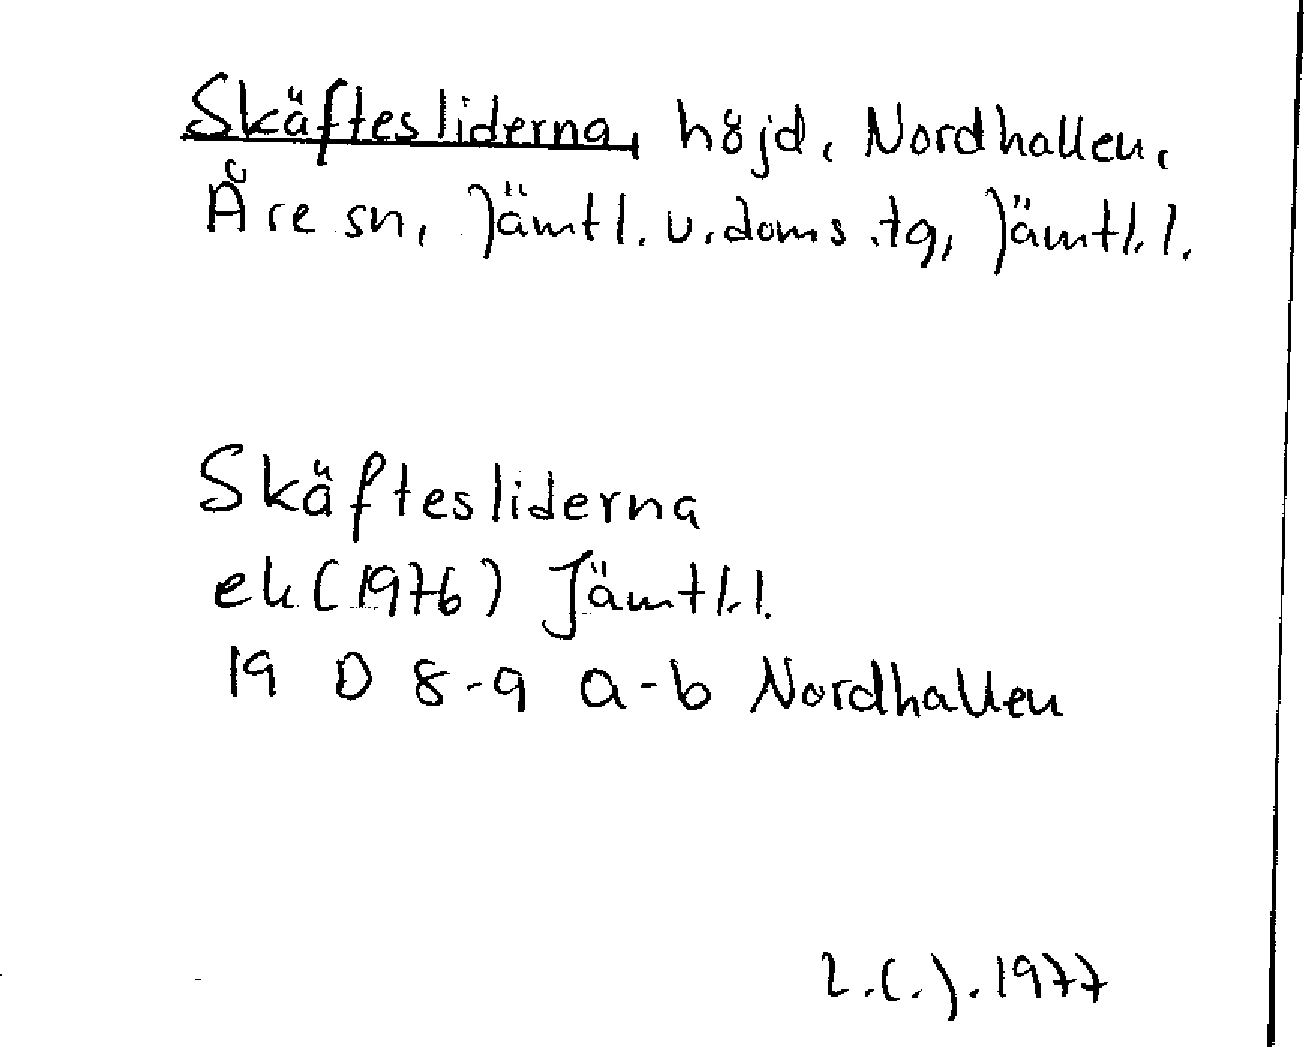 Skäftesliderna, höjd, Nordhallen,
Åre sn, Jämtl. v. doms.tg, Jämtl. l.
Skäftesliderna
ek (1976) Jämtl. l.
19 D 8-9 a-b Nordhallen
1977